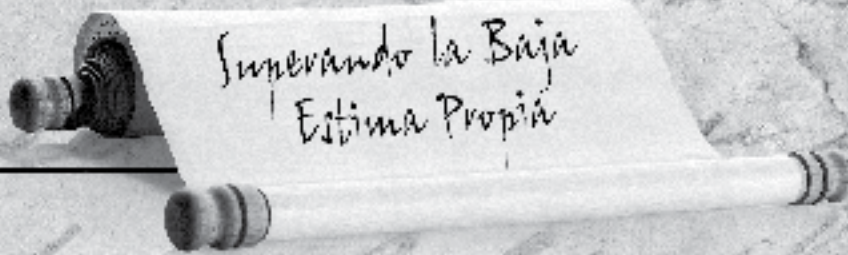 Superando la Baja
Estima Propia